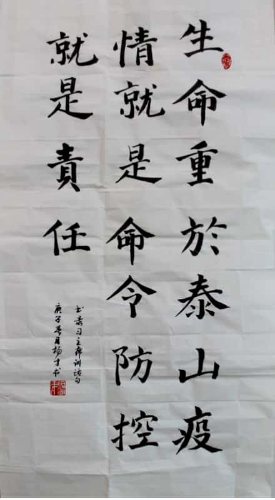 生命重於泰山疫
情就是命令防控
就是責任
庚子春月杨才书